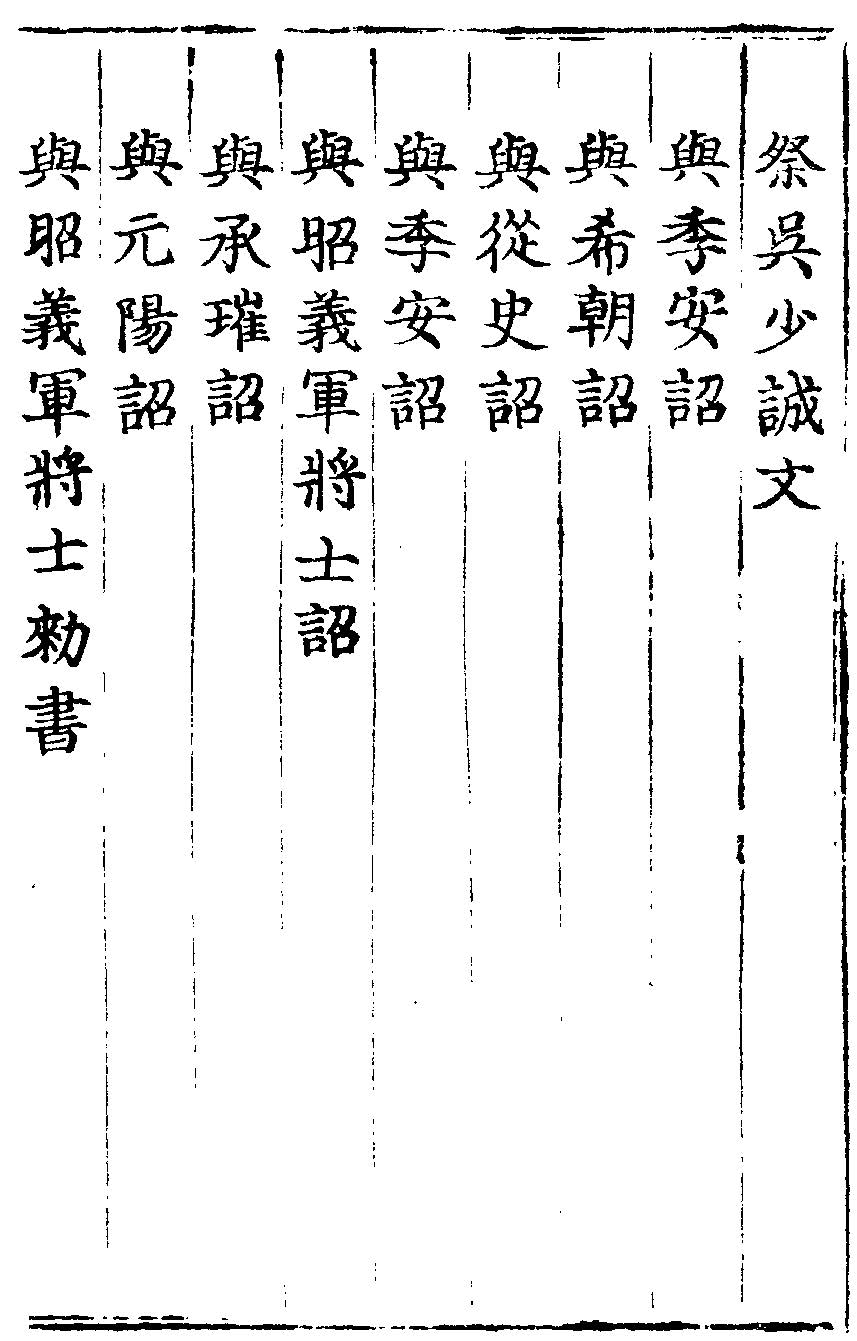 祭吳少誠文
與季安詔
與希朝詔
與從史詔
與季安詔
與昭義軍將士詔
與承璀詔
與元陽詔
與昭義軍將士勑書